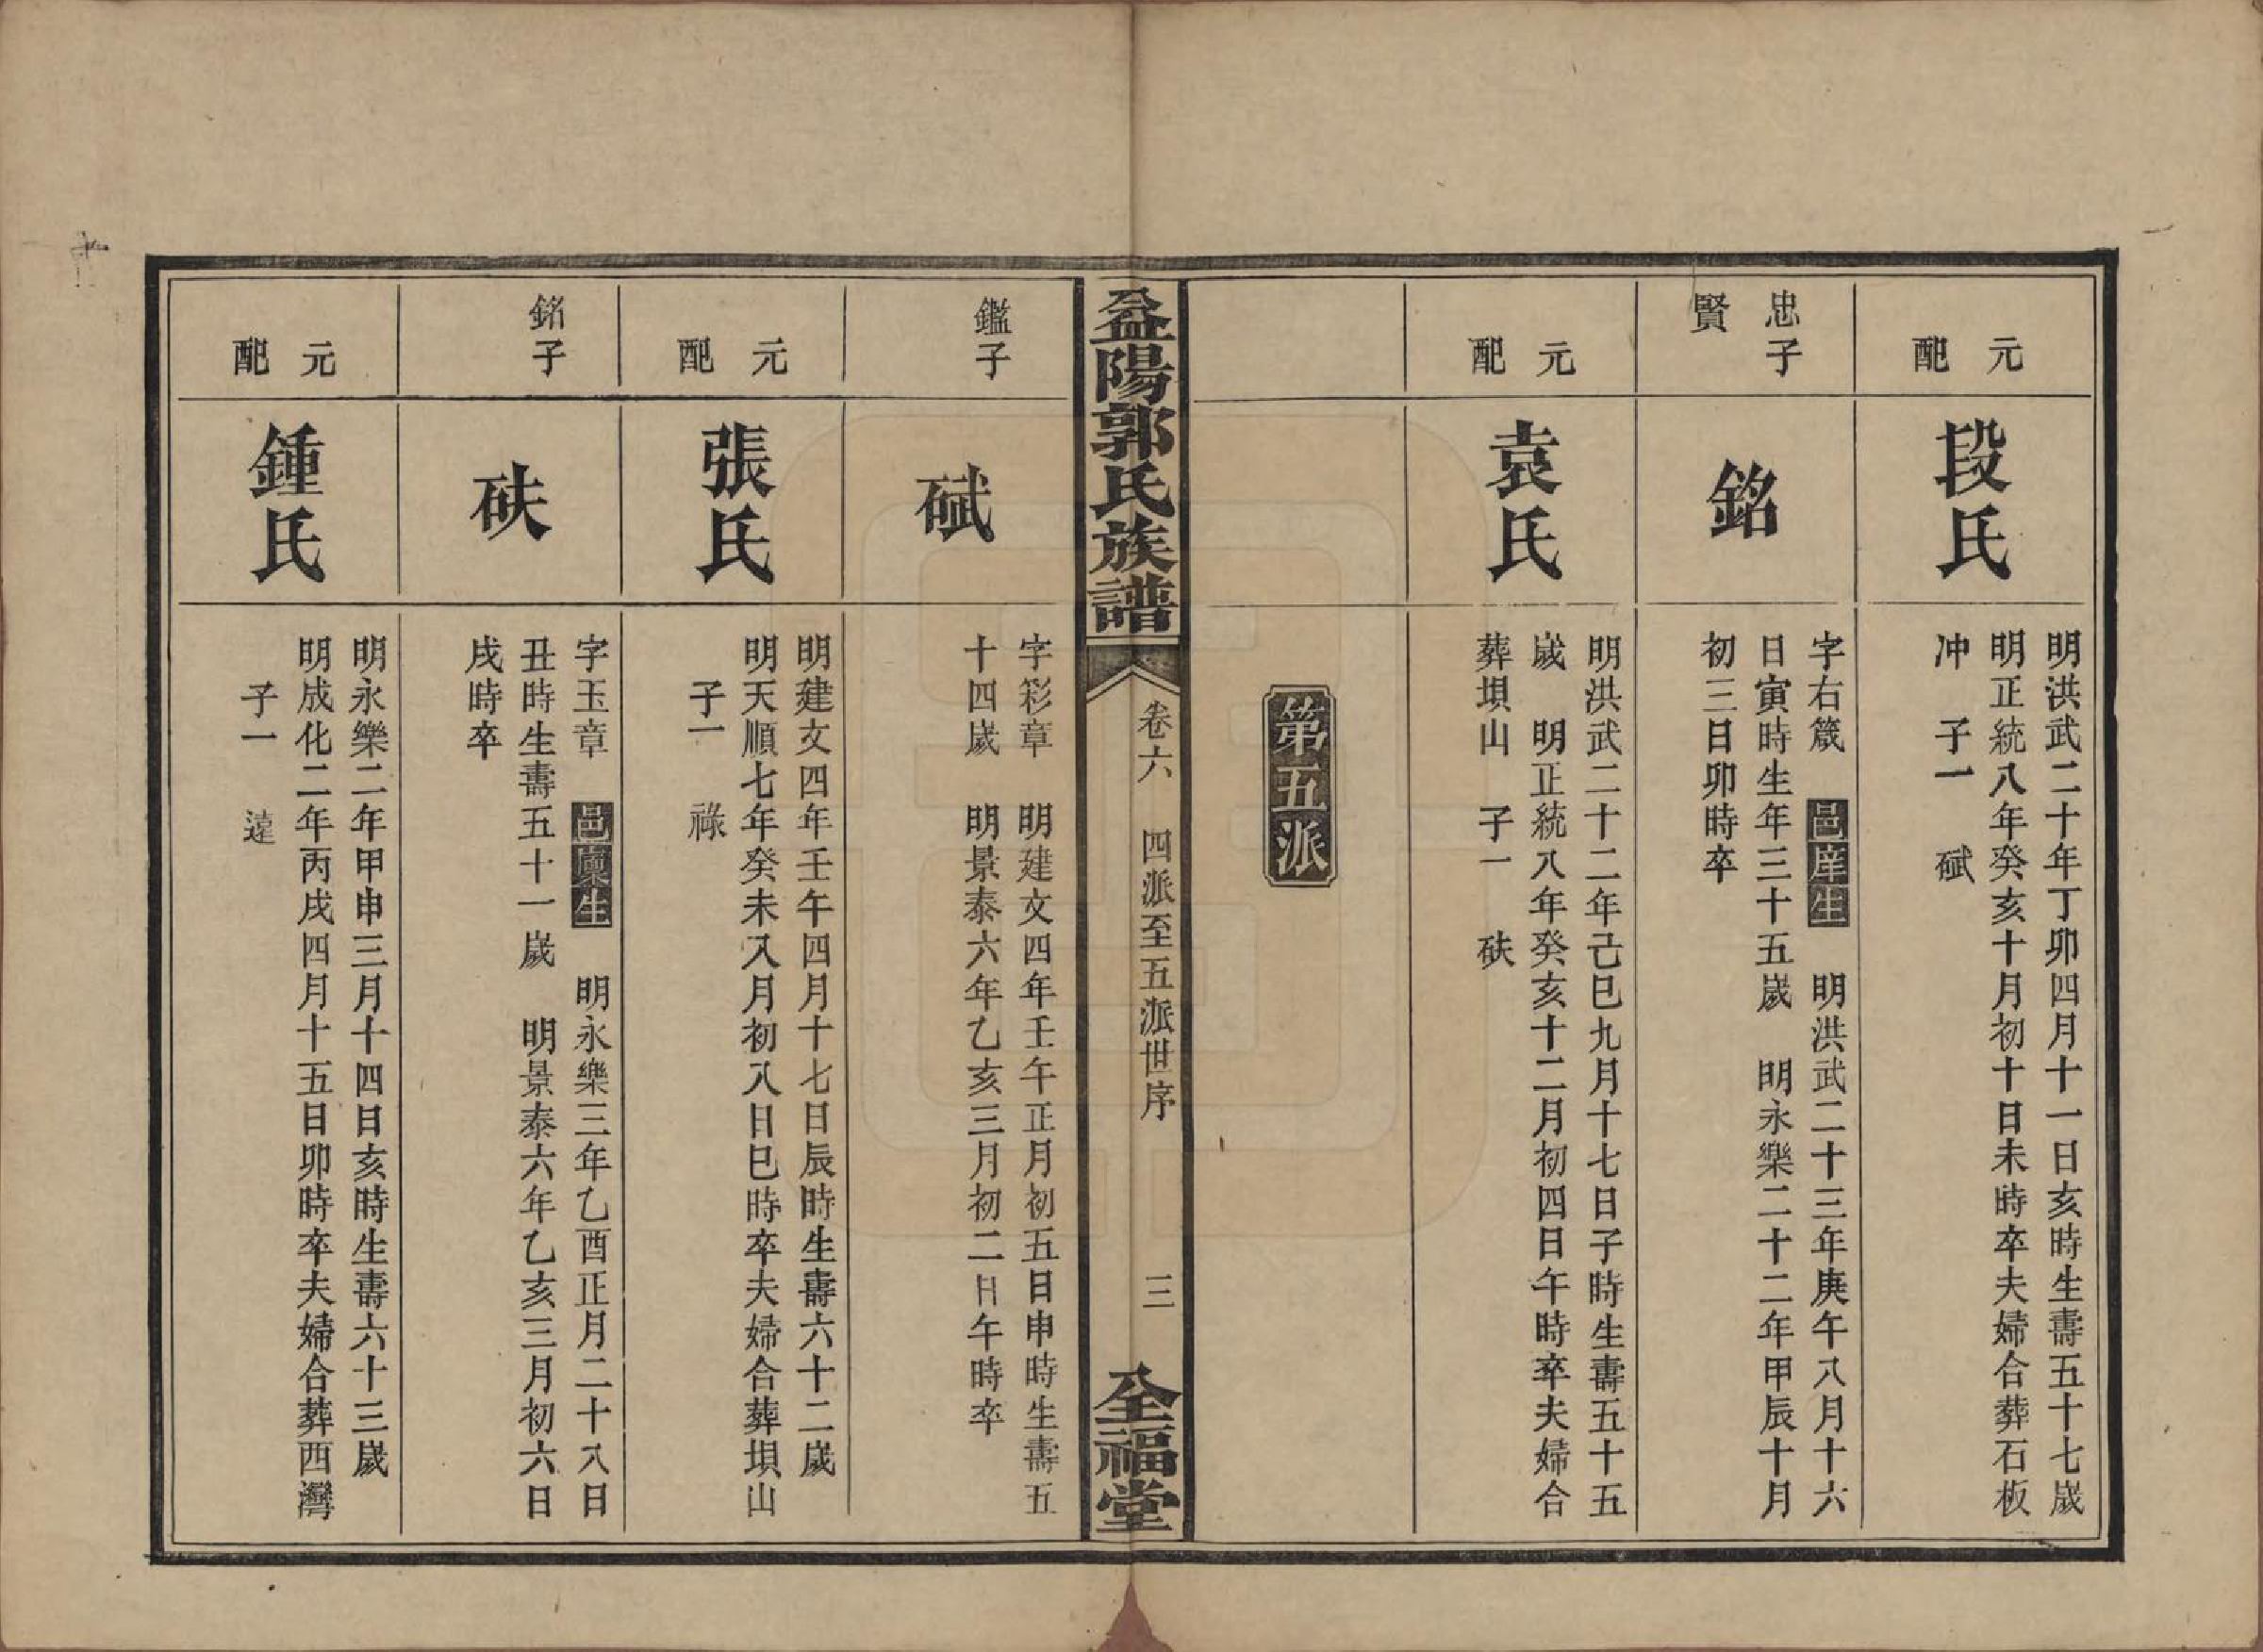 元配
段氏
明洪武二十年丁卯四月十一日亥時生壽五十七歲
明正統八年癸亥十月初十日未時卒夫婦合葬石板
冲　子一　碔
忠子
賢
銘
字右箴　邑庠生　明洪武二十三年庚午八月十六
日寅時生年三十五歲　明永樂二十二年甲辰十月
初三日卯時卒
元配
袁氏
明洪武二十二年己巳九月十七日子時生壽五十五
歲　明正統八年癸亥十二月初四日午時卒夫婦合
葬垻山　子一　砆
第五派
益陽郭氏族譜
卷六　四派至五派世序
三
全福堂
鑑子
碔
字彩章　明建文四年壬午正月初五日申時生壽五
十四歲　明景泰六年乙亥三月初二日午時卒
元配
張氏
明建文四年壬午四月十七日辰時生壽六十二歲
明天順七年癸未八月初八日巳時卒夫婦合葬垻山
子一　祿
銘子
砆
字玉章　邑廩生　明永樂三年乙酉正月二十八日
丑時生壽五十一歲　明景泰六年乙亥三月初六日
戌時卒
元配
鍾氏
明永樂二年甲申三月十四日亥時生壽六十三歲
明成化二年丙戌四月十五日卯時卒夫婦合葬西灣
子一　遠